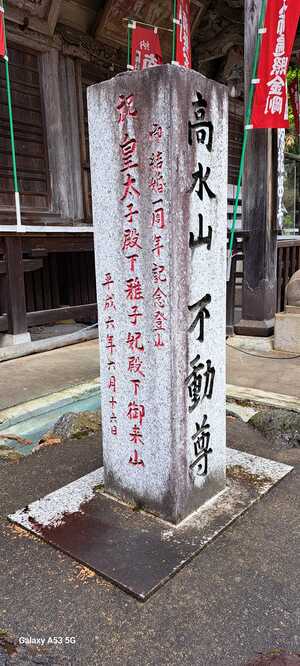 遍照金剛
納
高水山不動尊
結婚一周年記念登山
祝皇太子殿下雅子妃殿下御来山
平成六年六月十六日
Galaxy A53 5G